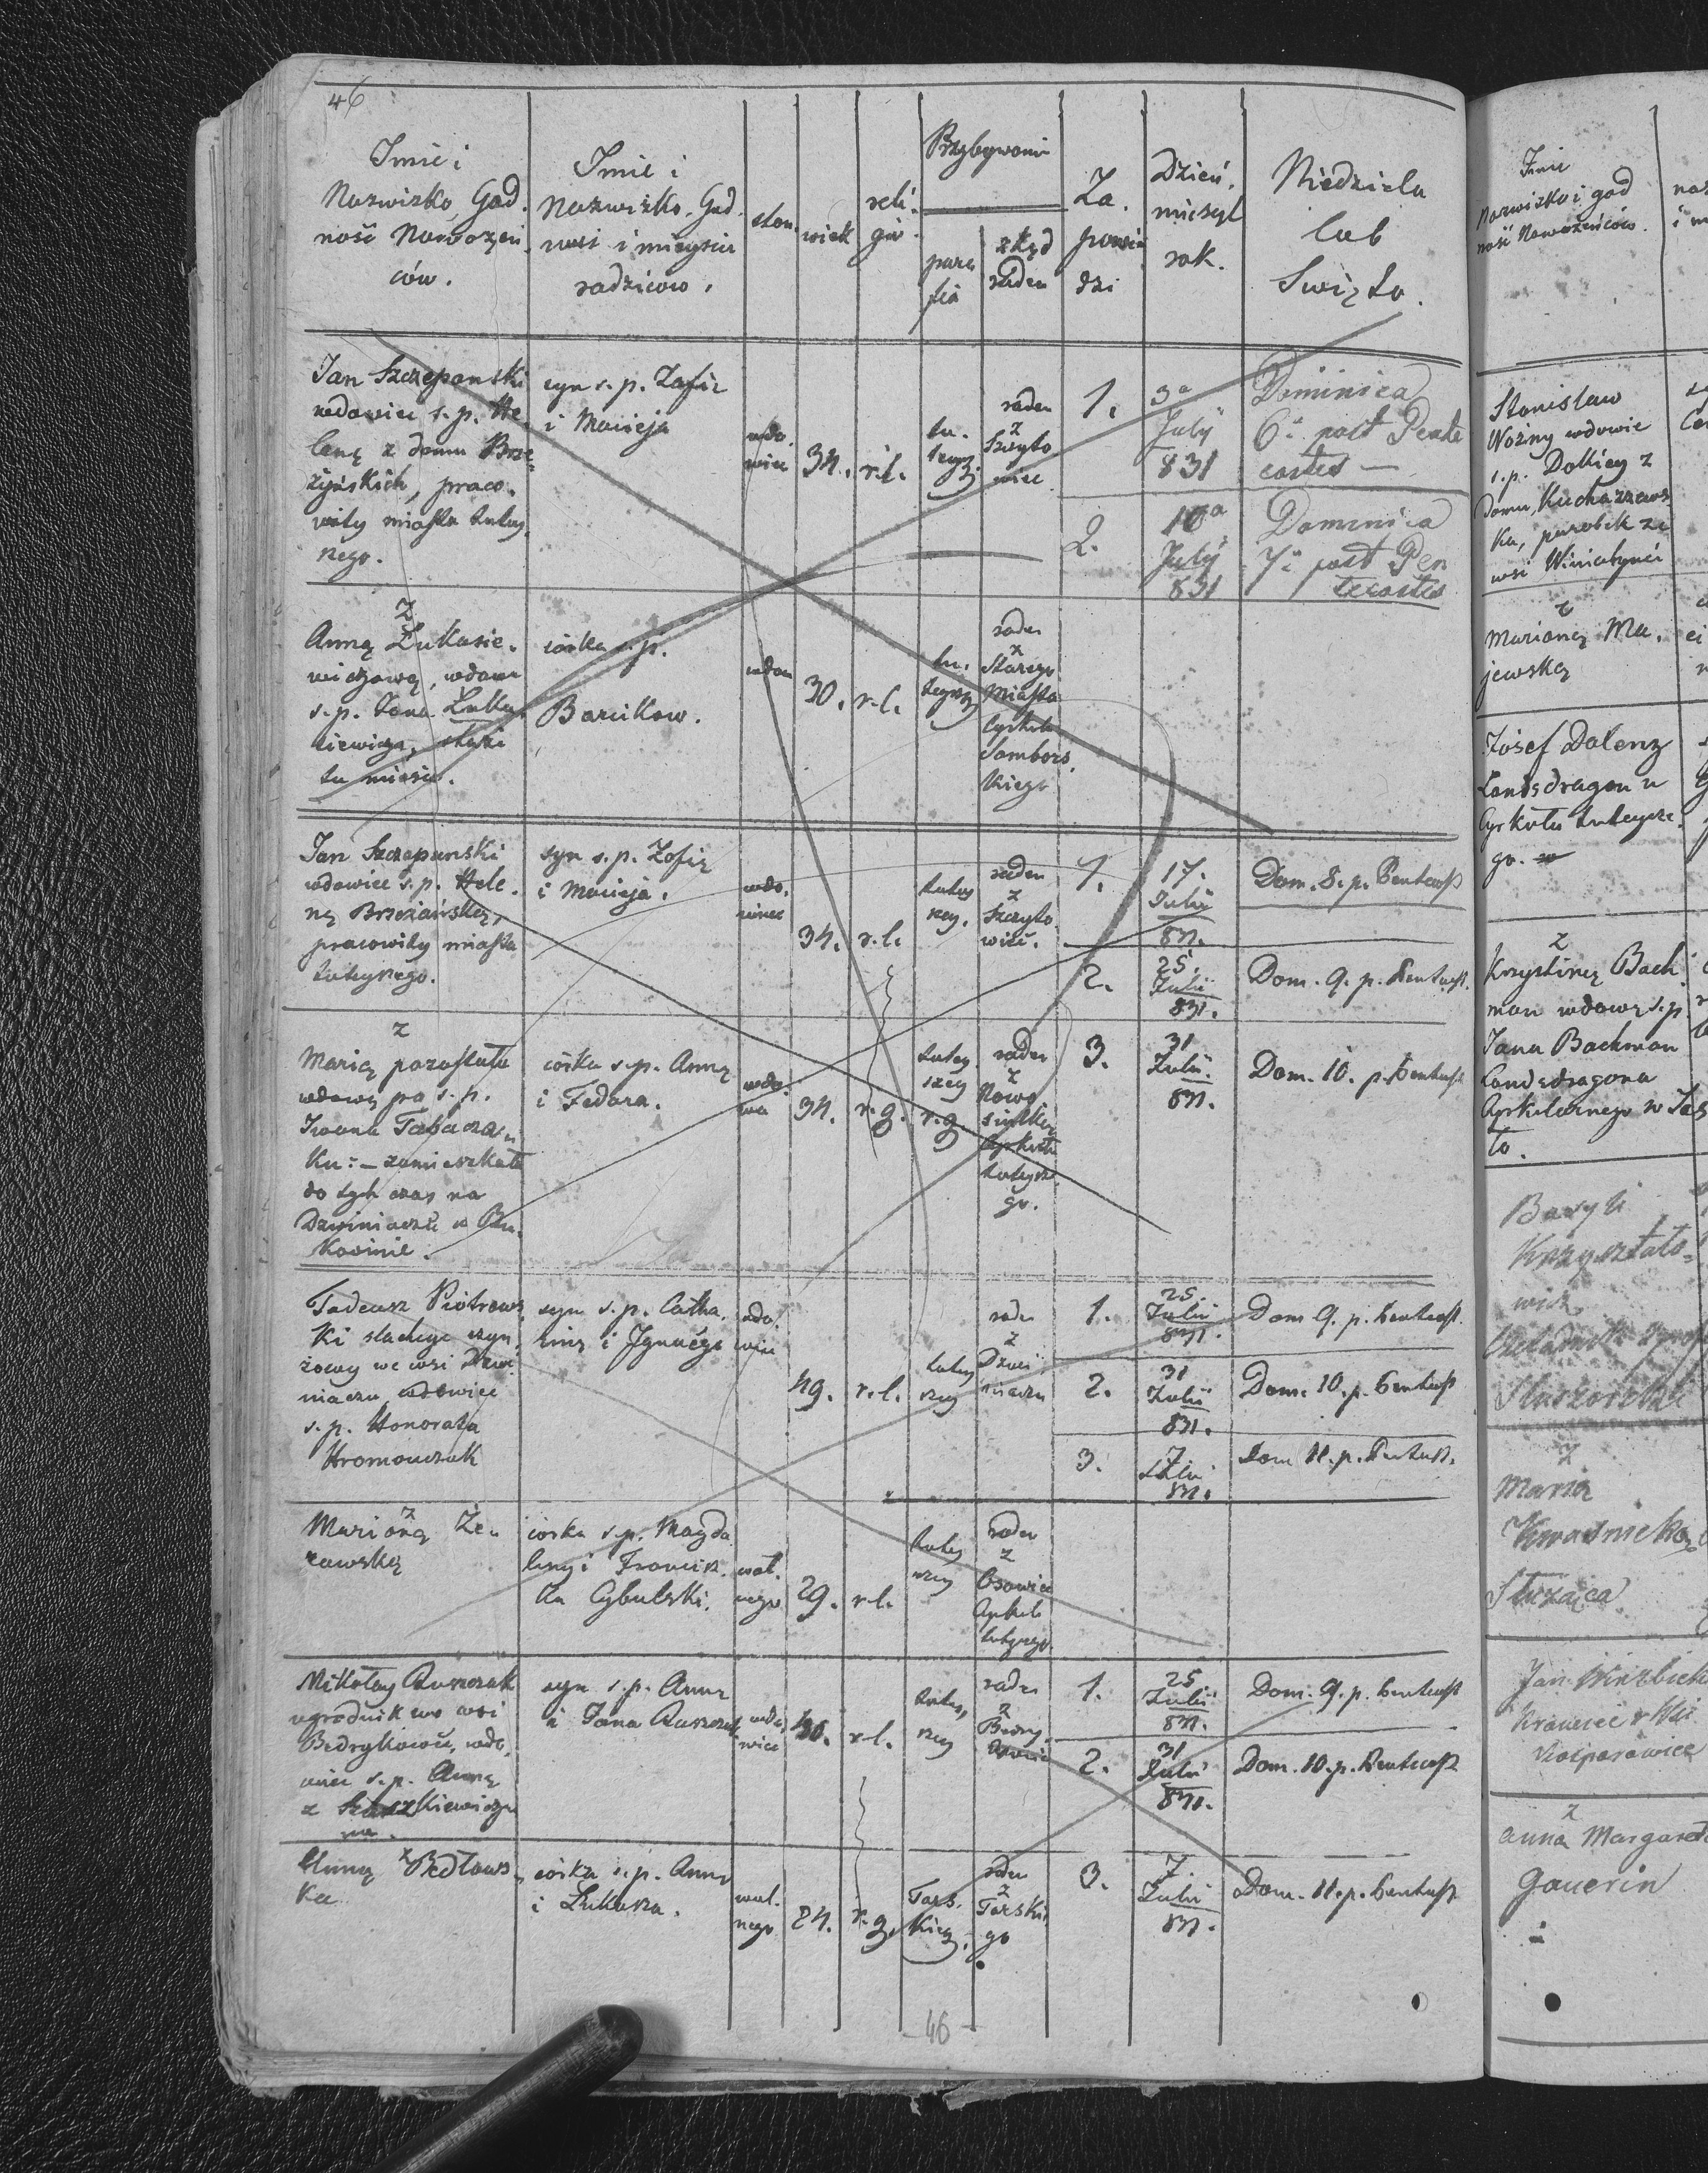 46
Imie i
Nazwisko, God.
ność Nowożeń
ców.
Imie i
Nazwisko, God.
ność i mieysce
rodziców.
stan.
wiek
reli.
gia.
Przybywania
para
fia
zkąd
rodem
Za.
powie
dzi
Dzień,
miesyc
rok.
Niedziela
lub
Swięto.
Jan Szczepanski
wdowiec s.p. He.
lenę z domu Brze
zyńskich, praco.
wity miasta tutey
nego.
syn s.p. Zofii
i Macieja
wdo.
wiec
34.
r.l.
tu.
teysz
rodem
z
Szczyto
wiec
1.
3a
July
831
Dominica
6a post Pente
costes —
2.
10a
July
831
Dominica
7a post Pen
tecostes
z
Anną Łukasie.
wiczową, wdowa
s.p. Jana Łuka
siewicza, służi
tu mieśce.
córka s.p.
Barcikow.
wdow
30.
r.l.
tu.
teysz
rodem
z
Starego
Miasta
Cyrkułu
Sambors.
kiego
Jan Szczepanski
wdowiec s.p. Hele.
nę Brzezańską,
pracowity miasta
tuteysnego.
syn s.p. Zofię
i Macieja.
wdo.
wiec
34.
r.l.
tutey
szey.
rodem
z
Szczyto
wiec.
1.
17.
Julii
831.
Dom. 8. p. Pentecost
2.
25.
Julii
831.
Dom. 9. p. Pentecost.
z
Marią pozostała
wdową po s.p.
Iwana Tabacza.
Ku:– zamieszkała
do tych czas na
Dzwiniaczu w Bu.
kowinie.
córka s.p. Anną
i Fedora.
wdo.
wa
34.
r.g.
tutey
szey
r.g.
rodem
z
Nowo
siułki
Cyrkułu
tuteysze
go.
3.
31
Julii.
831.
Dom. 10. p. Pentecost
Tadeusz Piotrows
ki slachcyc czyn
szowy we wsi Dzwi
niaczu wdowiec
s.p. Honorata
Hromouszak
syn s.p. Catha.
rinę i Ignacego
wdo.
wiec
49.
r.l.
tutey
szey
rodem
z
Dzwi
niaczu
1.
25.
Julii
831.
Dom 9. p. Pentecost.
2.
31
Julii
831.
Dom. 10. p. Pentecost
3.
7
Julii
831.
Dom 11. p. Pentecost.
z
Marioną Że.
rawską
córka s.p. Magda
leny i Francisz.
ka Cybulski.
wol.
nego
29.
r.l.
tutey
szey
rodem
z
Osowiec
Cyrkułu
tuteyszego
Mikołay Ruszczak
ogrodnik we wsi
Bedrykowci, wdo.
wiec s.p. Annę
z
syn s.p. Anny
i Jana Ruszczak
wdo.
wiec
r.l.
tutey,
szey
rodem
z
Bedry.
kowiec
1.
25
Julii
831.
Dom. 9. p. Pentecost
2.
31
Julii
831.
Dom. 10. p. Pentecost
z
Anną Bedlows.
ka
córka s.p. Anny
i Lukasza.
wol.
nego
24.
r.g.
Tors.
kiey.
rodem
z
Torski
go
3.
7.
Julii
831.
Dom. 11. p. Pentecost
- 46 -
Imie
Nazwisko i god
ność Nowożeńców.
Stanislaw
Woźny wdowiec
s.p. Dokiey z
domu Kucharzews
ka, parobek ze
wsi Winiatyńci
z
Marianą Ma.
jewską
Józef Dolenz
Landsdragon u
Cyrkułu tuteysze.
go.
z
Krzystiną Bach
man wdową s.p
Jana Bachman
Landsdragona
Cyrkularnego w Zas
to.
Bazyli
Krzyształo=
wicz
z
Maria
Kwasnicka
Służąca
Jan Wirzbicki
Krawiec
Kasparowice
z
Anna Margareta
Gauerin